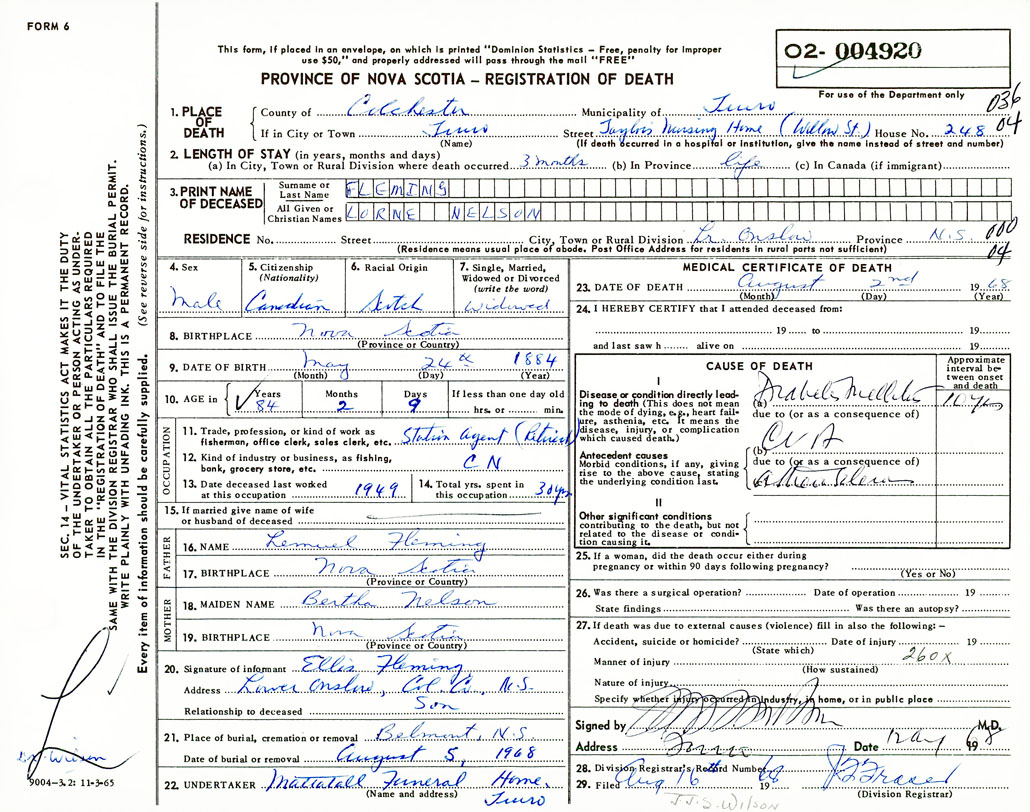 FORM 6
This form, if placed in an envelope, on which is printed "Dominion Statistics – Free, penalty for improper
use $50," and properly addressed will pass through the mail "FREE"
PROVINCE OF NOVA SCOTIA – REGISTRATION OF DEATH
02- 004920
For use of the Department only
036
04
1. PLACE OF DEATH County of Colchester Municipality of Truro
If in City or Town Truro Street Taylor's Nursing Home (Willow St.) House No. 248
(Name) (If death occurred in a hospital or institution, give the name instead of street and number)
2. LENGTH OF STAY (in years, months and days)
(a) In City, Town or Rural Division where death occurred 3 months (b) In Province life (c) In Canada (if immigrant)
3. PRINT NAME OF DECEASED
Surname or Last Name FLEMING
All Given or Christian Names LORNE NELSON
000
RESIDENCE No. Street City, Town or Rural Division Lr. Onslow Province N.S.
(Residence means usual place of abode. Post Office Address for residents in rural ports not sufficient) 04
4. Sex Male
5. Citizenship (Nationality) Canadian
6. Racial Origin Scotch
7. Single, Married, Widowed or Divorced (write the word) Widowed
8. BIRTHPLACE Nova Scotia
(Province or Country)
9. DATE OF BIRTH May 24th 1884
(Month) (Day) (Year)
10. AGE in Years 84 Months 2 Days 9 If less than one day old hrs. or min.
OCCUPATION
11. Trade, profession, or kind of work as
fisherman, office clerk, sales clerk, etc. Station Agent (Retired)
12. Kind of industry or business, as fishing,
bank, grocery store, etc. CN
13. Date deceased last worked at this occupation 1949
14. Total yrs. spent in this occupation 30 yrs
15. If married give name of wife
or husband of deceased
FATHER
16. NAME Lemuel Fleming
17. BIRTHPLACE Nova Scotia
(Province or Country)
MOTHER
18. MAIDEN NAME Bertha Nelson
19. BIRTHPLACE Nova Scotia
(Province or Country)
20. Signature of informant Ellis Fleming
Address Lower Onslow, Col. Co., N.S.
Relationship to deceased Son
21. Place of burial, cremation or removal Belmont, N.S.
Date of burial or removal August 5, 1968
22. UNDERTAKER Mattatall Funeral Home,
(Name and address) Truro
MEDICAL CERTIFICATE OF DEATH
23. DATE OF DEATH August 2nd 1968
(Month) (Day) (Year)
24. I HEREBY CERTIFY that I attended deceased from:
19 to 19
and last saw h alive on 19
CAUSE OF DEATH
Approximate interval between onset and death
I
Disease or condition directly leading to death (This does not mean the mode of dying, e.g., heart failure, asthenia, etc. It means the disease, injury, or complication which caused death.)
(a) Diabetes Mellitus 10 yrs
due to (or as a consequence of)
Antecedent causes
Morbid conditions, if any, giving rise to the above cause, stating the underlying condition last.
(b) CVA
due to (or as a consequence of)
(c)
II
Other significant conditions
contributing to the death, but not related to the disease or condition causing it.
25. If a woman, did the death occur either during
pregnancy or within 90 days following pregnancy?
(Yes or No)
26. Was there a surgical operation? Date of operation 19
State findings Was there an autopsy?
27. If death was due to external causes (violence) fill in also the following: –
Accident, suicide or homicide? Date of injury 19
(State which)
260X
Manner of injury
(How sustained)
Nature of injury
Specify whether injury occurred in industry, in home, or in public place
Signed by M.D.
Address Truro Date 19 68
28. Division Registrar's Record Number
29. Filed Aug 16th 19 68 Fraser
(Division Registrar)
J.J.S. WILSON
SEC. 14 – VITAL STATISTICS ACT MAKES IT THE DUTY
OF THE UNDERTAKER OR PERSON ACTING AS UNDER-
TAKER TO OBTAIN ALL THE PARTICULARS REQUIRED
IN THE "REGISTRATION OF DEATH" AND TO FILE THE
SAME WITH THE DIVISION REGISTRAR WHO SHALL ISSUE THE BURIAL PERMIT.
WRITE PLAINLY WITH UNFADING INK. THIS IS A PERMANENT RECORD.
Every item of information should be carefully supplied. (See reverse side for instructions.)
Wilson
9004-3.2: 11-3-65